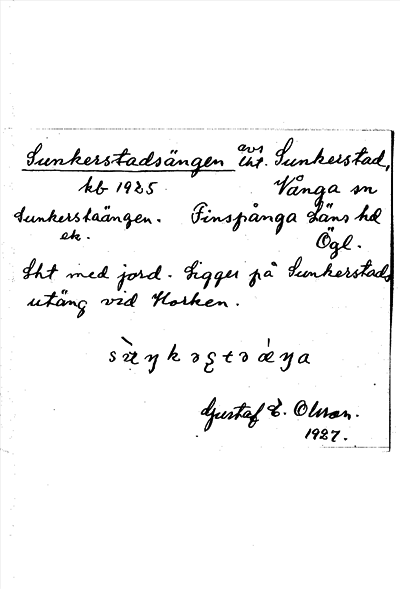 Sunkerstadsängen avs lht. Sunkerstad,
kb 1925 Vånga sn
Sunkerstaängen. Finspånga läns hd
ek. Ögl.
Lht med jord. Ligger på Sunkerstads
utäng vid Horken.
Gustaf E. Olsson.
1927.